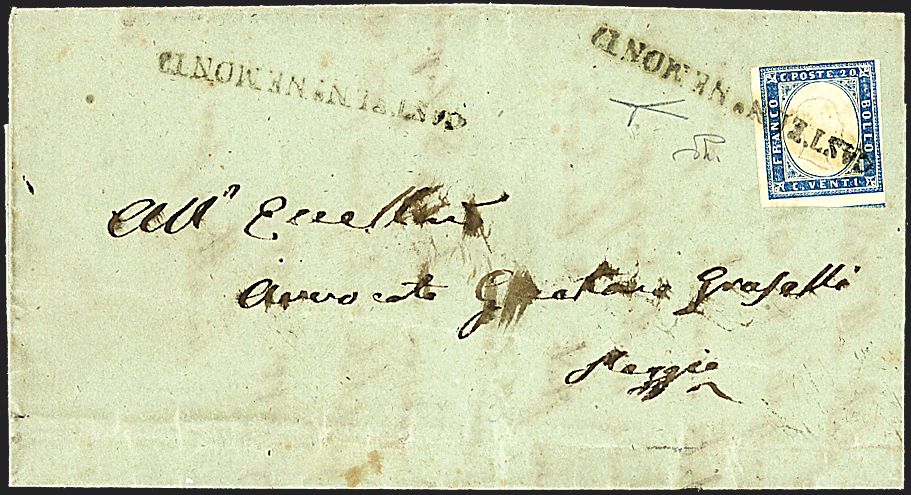 CASTELN° NE MONTI
CASTELN° NE MONTI
FRANCO
C. POSTE 20
BOLLO
C. VENTI
All'
Avvocato Gaetano Grasselli
Reggio